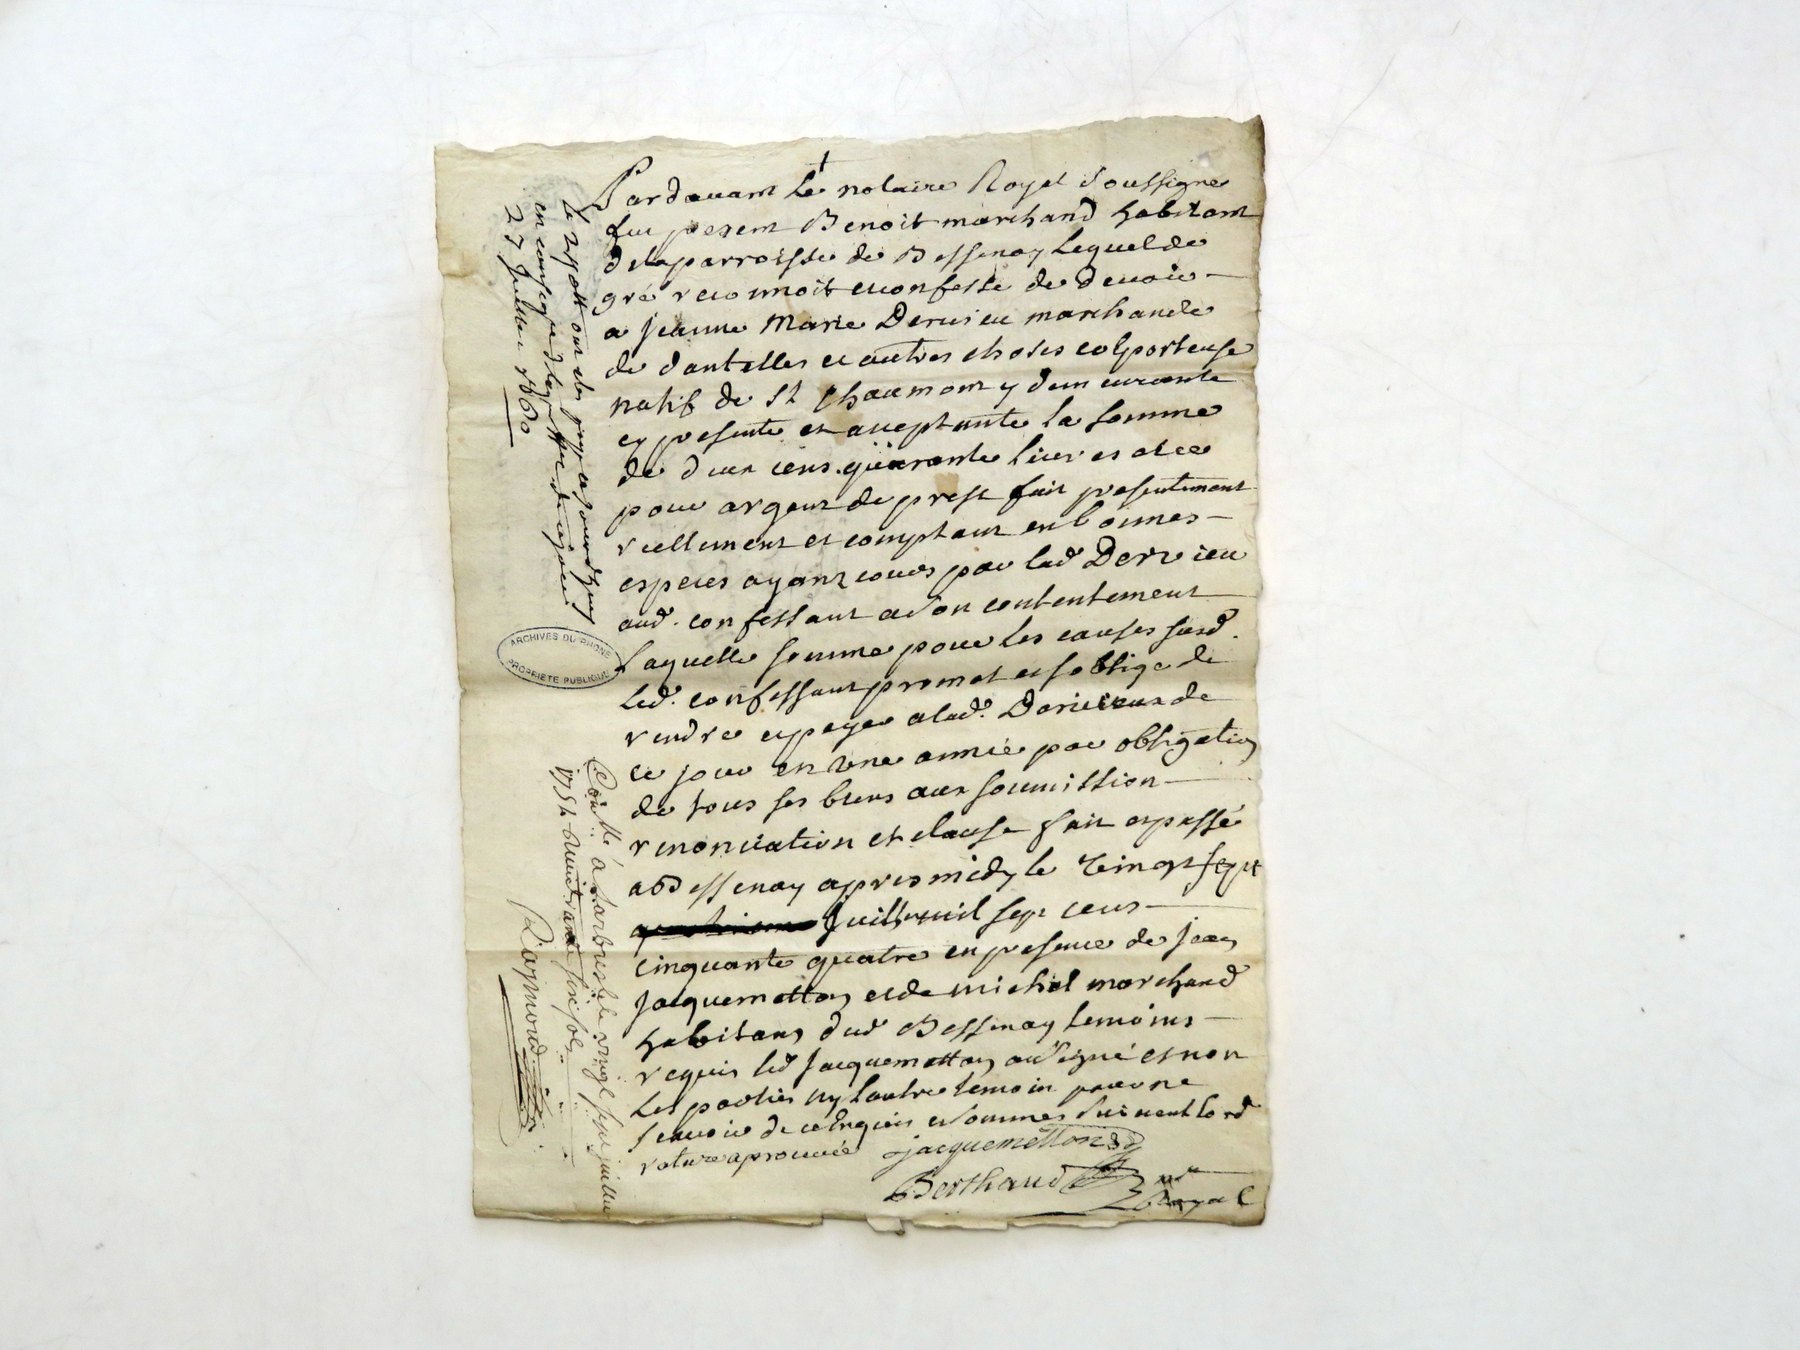 Pardevant Le notaire Royal soussigne
fut present Benoit marchand habitant
de la parroisse de Bessenay Lequel de
gré reconnoit et confesse de devoir
a jeanne Marie Dervieu marchande
de dantelles et autres choses colporteuse
natif de St Chaumont y demeurante
cy presente et acceptante la somme
de deux cens quarante livres et ce
pour argent de prest fait presentement
reellement et comptant en bonnes
especes ayant cours par lad. Dervieu
aud. confessant a son contentement
Laquelle somme pour les causes susd.
Led. confessant promet et s'oblige de
rendre et payer a lad. Dervieux de
ce jour en une année par obligation
de tous ses biens aux soumission
renonciation et clause fait et passé
a Bessenay apres midy le vingt sept
Juillet mil sept cens
cinquante quatre en presence de jean
jacquemetton et de michel marchand
habitans dud Bessenay temoins
requis led jacquemetton a signé et non
Les parties ny l'autre temoin pour ne
scavoir de ce enquis et sommes suivant l'ord
rature aprouvée jacquemetton
Berthaud nre Royal
27 Juillet 1760
ARCHIVES DU RHONE
PROPRIETE PUBLIQUE
Con.llé à Larbresle le vingt sept juillet
1754